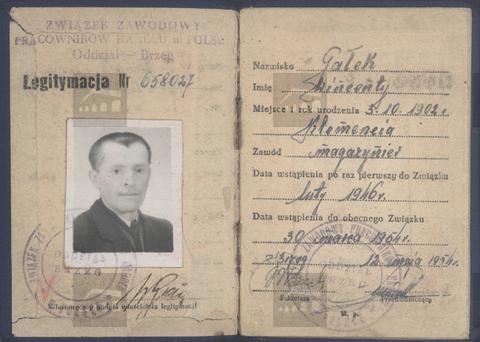 ZWIĄZEK ZAWODOWY
PRACOWNIKÓW HANDLU w POLSCE
Oddział - Brzeg
Legitymacja Nr 658027
Własnoręczny podpis właściciela legitymacji
Nazwisko Gałek
Imię Wincenty
Miejsce i rok urodzenia 5.10.1902 r.
Klemencia
Zawód magazynier
Data wstąpienia po raz pierwszy do Związku
luty 1946 r.
Data wstąpienia do obecnego Związku
30 marca 1954 r.
Brzeg 12 maja 1954 r.
Sekretarz Przewodniczący
M. p.